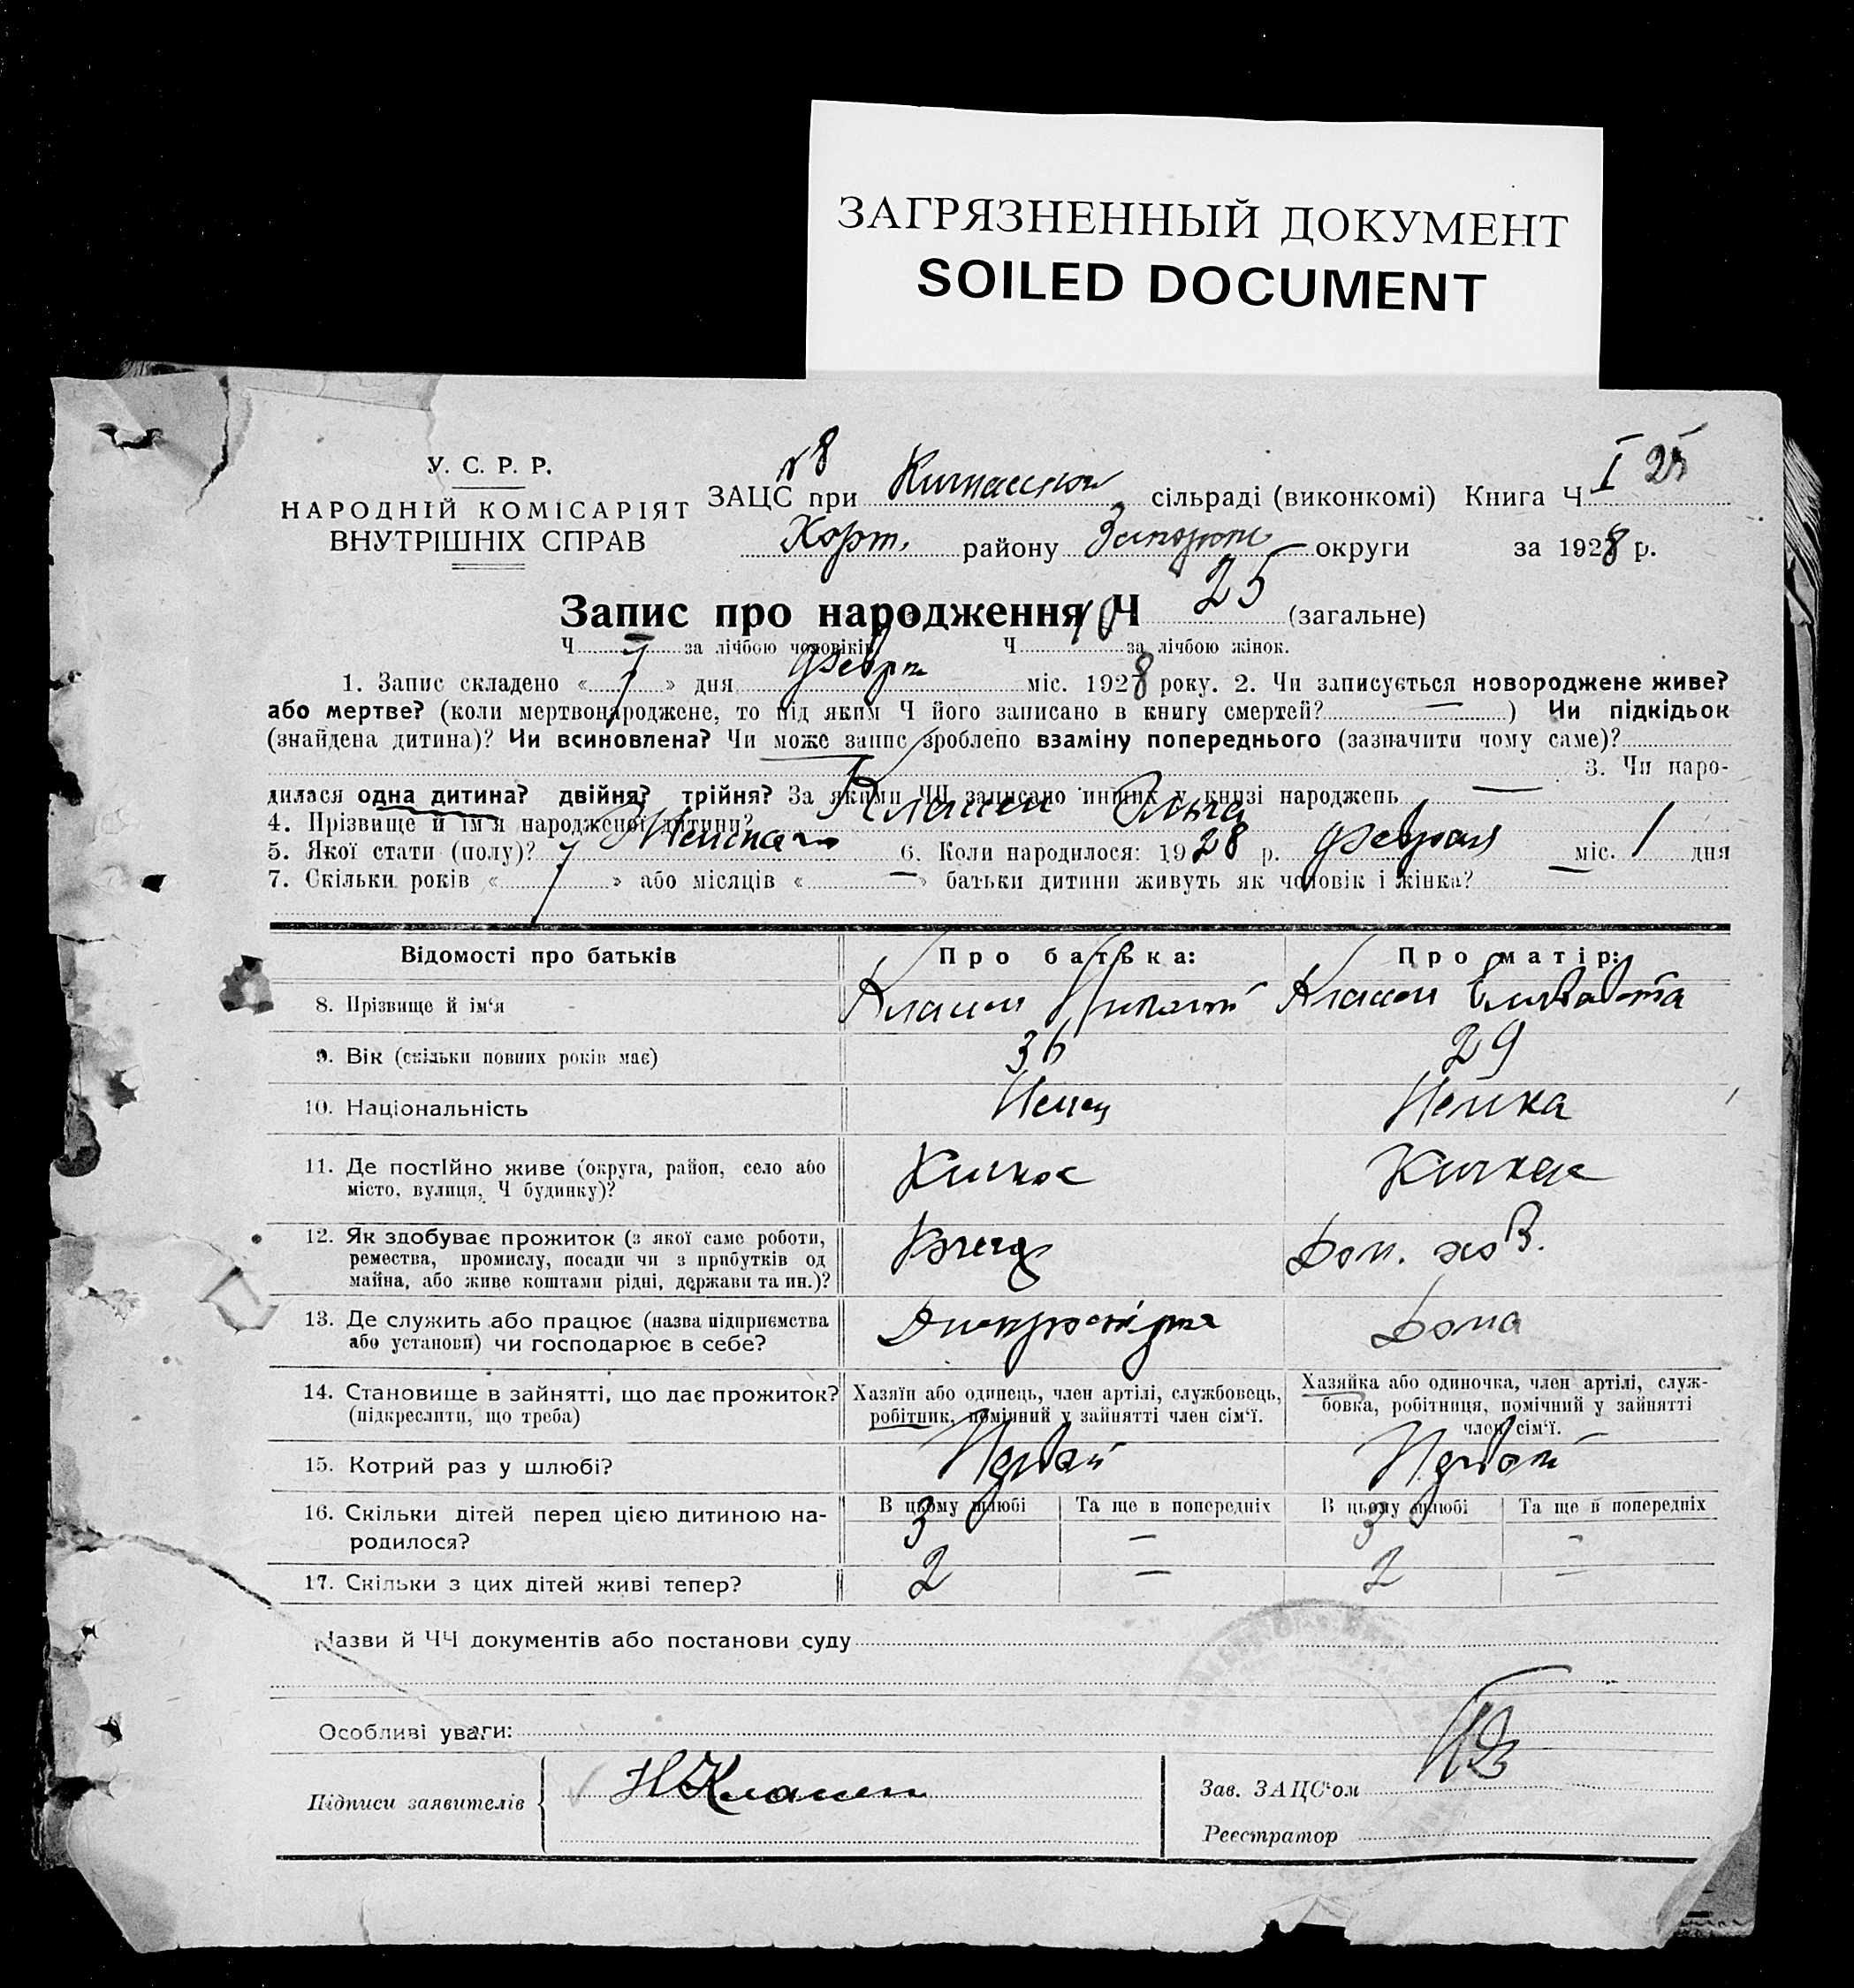 ЗАГРЯЗНЕННЫЙ ДОКУМЕНТ
SOILED DOCUMENT
У. С. Р. Р.
НАРОДНІЙ КОМІСАРІЯТ
ВНУТРІШНІХ СПРАВ
№ 8
ЗАЦС при сільраді (виконкомі) Книга Ч I 25
Хорт. району округи за 1928 р.
Запис про народження Ч 25 (загальне)
Ч за лічбою чоловіків. Ч 10 за лічбою жінок.
1. Запис складено « 7 » дня міс. 1928 року. 2. Чи записується новороджене живе?
або мертве? (коли мертвонароджене, то під яким Ч його записано в книгу смертей? — ) Чи підкідьок
(знайдена дитина)? Чи всиновлена? Чи може запис зроблено взаміну попереднього (зазначити чому саме)?
3. Чи наро-
дилася одна дитина? двійня? трійня? За якими ЧЧ записано инших у книзі народжень —
4. Прізвище й ім'я народженої дитини? Классен Ольга
5. Якої стати (полу)? 6. Коли народилося: 1928 р. Февраля міс. 1 дня
7. Скільки років « 7 » або місяців « — » батьки дитини живуть як чоловік і жінка?
Відомості про батьків
Про батька:
Про матір:
8. Прізвище й ім'я Классен Николай Классен Елизавета
9. Вік (скільки повних років має) 36 29
10. Національність Немец Немка
11. Де постійно живе (округа, район, село або
місто, вулиця, Ч будинку)? Кичкас Кичкас
12. Як здобуває прожиток (з якої саме роботи,
ремества, промислу, посади чи з прибутків од
майна, або живе коштами рідні, держави та ин.)? Дом. хоз.
13. Де служить або працює (назва підприємства
або установи) чи господарює в себе? Дома
14. Становище в зайнятті, що дає прожиток?
(підкреслити, що треба)
Хазяїн або одинець, член артілі, службовець,
робітник, помічний у зайнятті член сім'ї.
Хазяйка або одиночка, член артілі, служ-
бовка, робітниця, помічний у зайнятті
член сім'ї.
15. Котрий раз у шлюбі? Первый Первый
16. Скільки дітей перед цією дитиною на-
родилося?
В цьому шлюбі Та ще в попередніх В цьому шлюбі Та ще в попередніх
3 — 3 -
17. Скільки з цих дітей живі тепер? 2 — 2 —
Назви й ЧЧ документів або постанови суду
Особливі уваги:
Підписи заявителів Н Классен
Зав. ЗАЦС'ом
Реєстратор